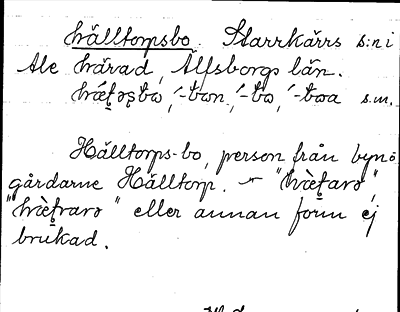 hälltorpsbo Starrkärrs s:n i
Ale härad, Älfsborgs län.
-bon, -bo, -boa s.m.
Hälltorps-bo, person från byn o
gårdarne Hälltorp. - "
" eller annan form ej
brukad.